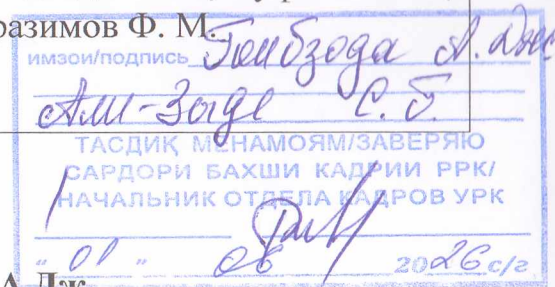 разимов Ф. М.
имзои/подпись Гоибзода А. Дж
Али-Заде С. Б.
ТАСДИҚ МЕНАМОЯМ/ЗАВЕРЯЮ
САРДОРИ БАХШИ КАДРИИ РРК/
НАЧАЛЬНИК ОТДЕЛА КАДРОВ УРК
" 01 " 06 2026 с/г
А.Дж